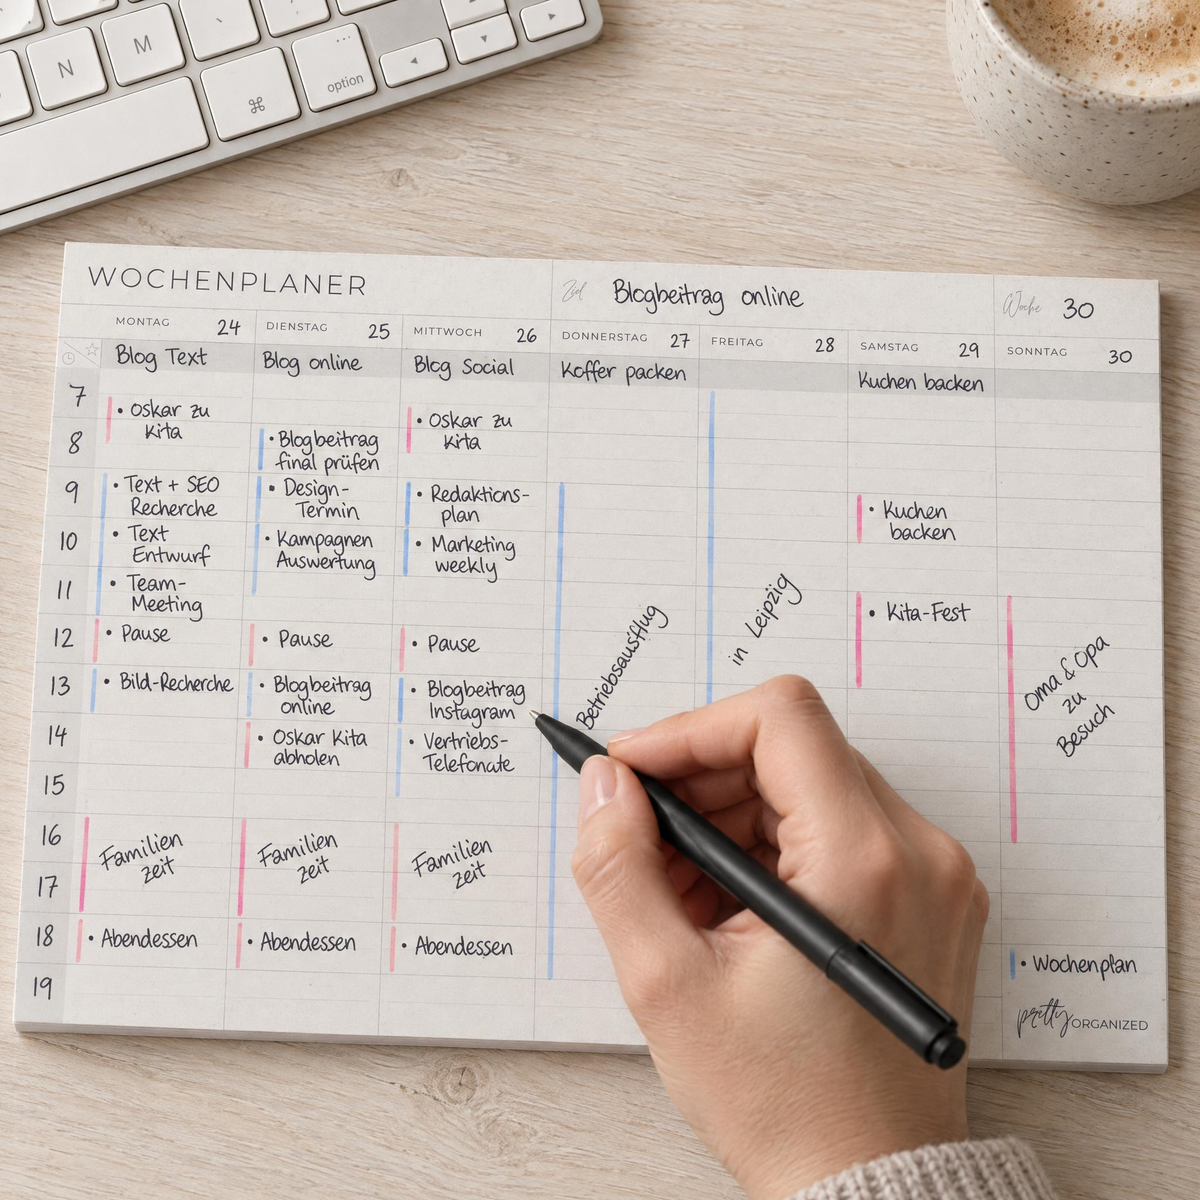 N
M
⌘
option
WOCHENPLANER
Ziel Blogbeitrag online
Woche 30
MONTAG 24
DIENSTAG 25
MITTWOCH 26
DONNERSTAG 27
FREITAG 28
SAMSTAG 29
SONNTAG 30
Blog Text
Blog online
Blog Social
Koffer packen
Kuchen backen
7
8
9
10
11
12
13
14
15
16
17
18
19
• Oskar zu
Kita
• Text + SEO
Recherche
• Text
Entwurf
• Team-
Meeting
• Pause
• Bild-Recherche
Familien
zeit
• Abendessen
• Blogbeitrag
final prüfen
• Design-
Termin
• Kampagnen
Auswertung
• Pause
• Blogbeitrag
online
• Oskar Kita
abholen
Familien
zeit
• Abendessen
• Oskar zu
Kita
• Redaktions-
plan
• Marketing
weekly
• Pause
• Blogbeitrag
Instagram
• Vertriebs-
Telefonate
Familien
zeit
• Abendessen
Betriebsausflug
in Leipzig
• Kuchen
backen
• Kita-Fest
Oma & Opa
zu
Besuch
• Wochenplan
pretty ORGANIZED